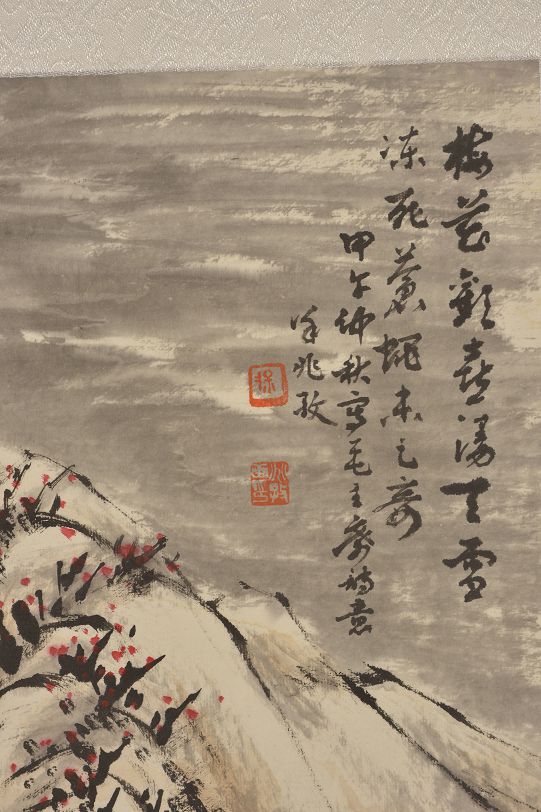 梅花歡喜漫天雪
凍死蒼蠅未足奇
甲午仲秋寫毛主席詩意
徐兆孜
徐